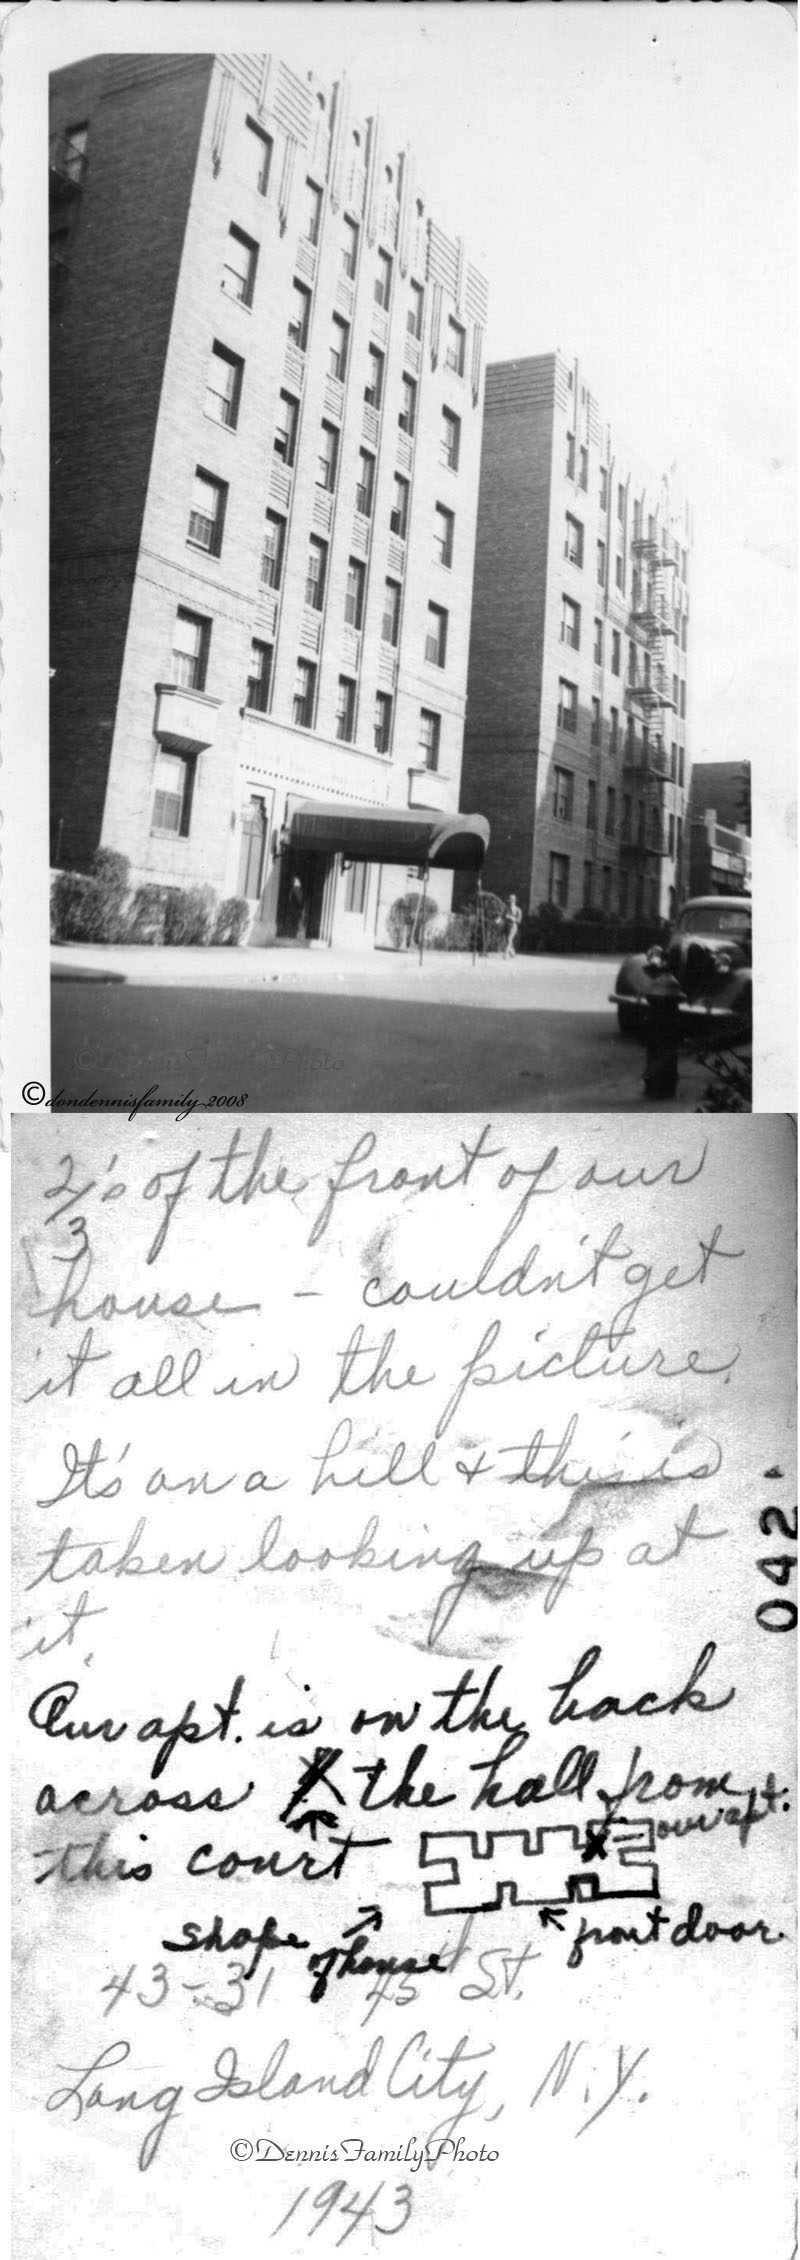 ©DennisFamilyPhoto
©dondennisfamily 2008
2/3's of the front of our
house - couldn't get
it all in the picture.
It's on a hill & this is
taken looking up at
it.
042
Our apt. is on the back
across X the hall from
this court
X - our apt.
shape of house
front door.
43-31 45th St.
Long Island City, N.Y.
©DennisFamilyPhoto
1943